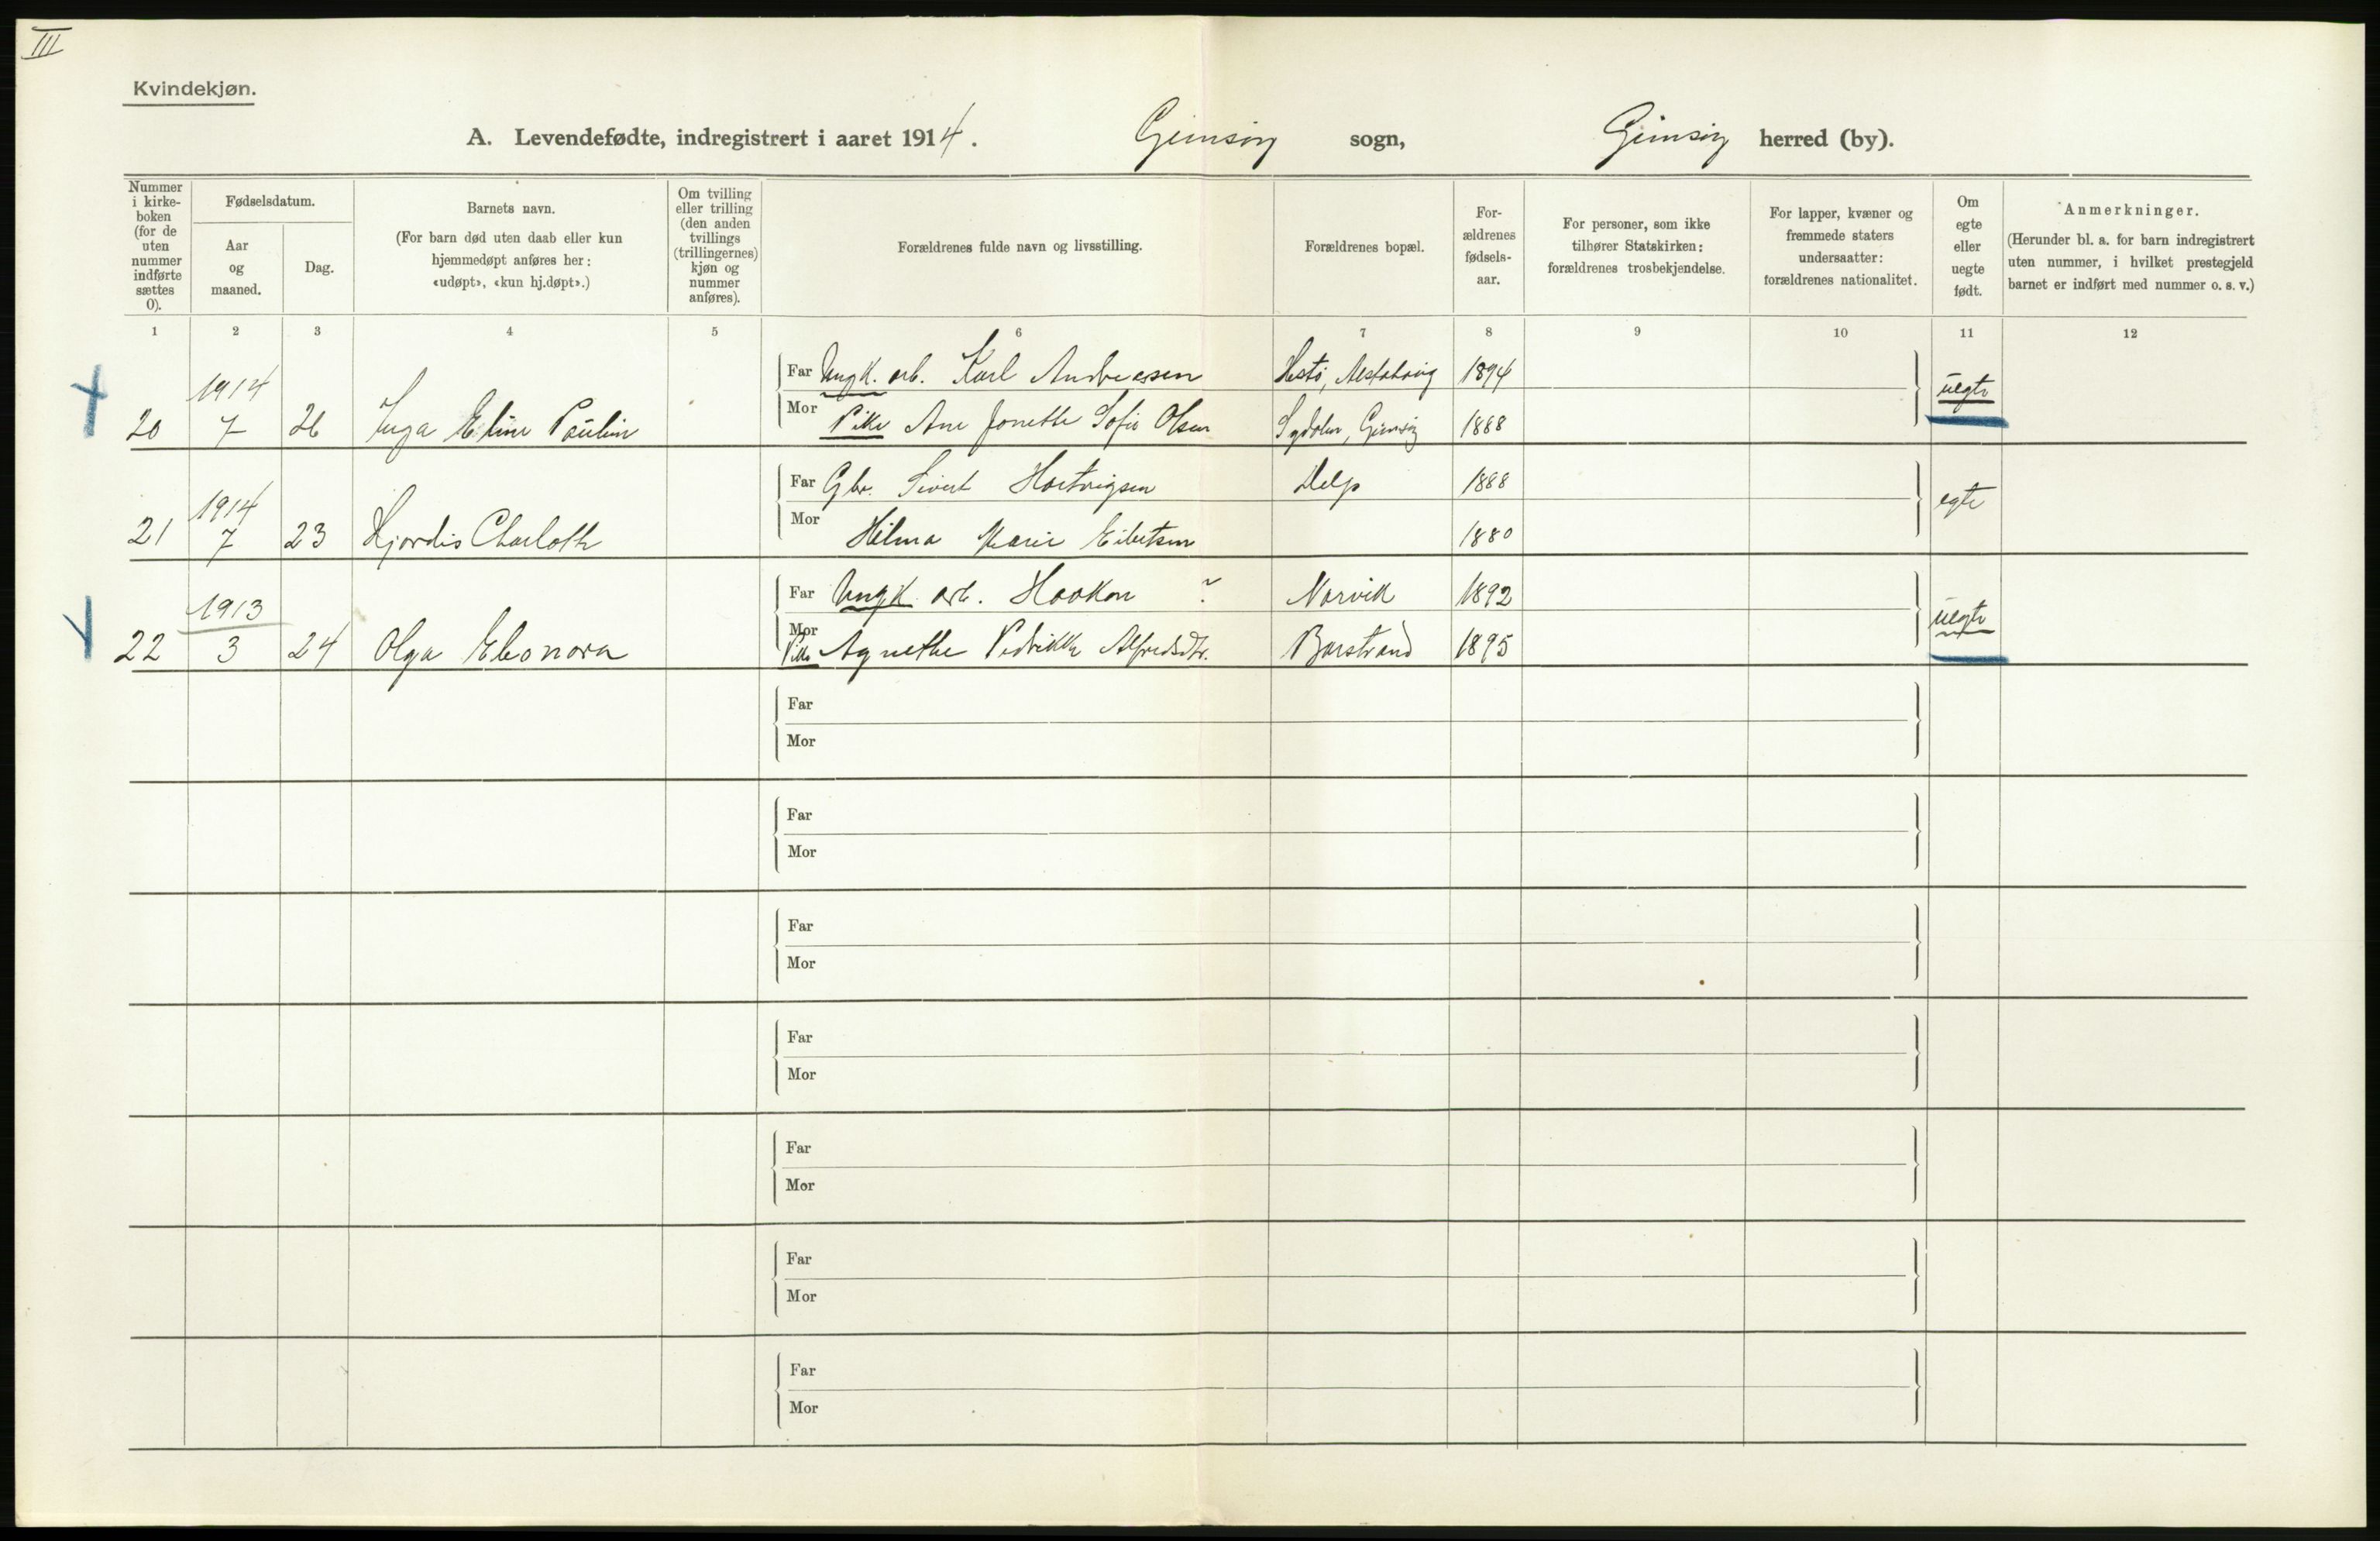 III
Kvindekjøn.
A. Levendefødte, indregistrert i aaret 1914. Gimsøy sogn, Gimsøy herred (by).
Nummer i kirke-boken (for de uten nummer indførte sættes 0).
Fødselsdatum.
Aar og maaned.
Dag.
Barnets navn.
(For barn død uten daab eller kun hjemmedøpt anføres her: «udøpt», «kun hj.døpt».)
Om tvilling eller trilling (den anden tvillings (trillingernes) kjøn og nummer anføres).
Forældrenes fulde navn og livsstilling.
Forældrenes bopæl.
For-ældrenes fødsels-aar.
For personer, som ikke tilhører Statskirken: forældrenes trosbekjendelse.
For lapper, kvæner og fremmede staters undersaatter: forældrenes nationalitet.
Om egte eller uegte født.
Anmerkninger.
(Herunder bl. a. for barn indregistrert uten nummer, i hvilket prestegjeld barnet er indført med nummer o. s. v.)
1 2 3 4 5 6 7 8 9 10 11 12
1914
Far Ungk. arb. Karl Andreassen Alstahaug 1894
uegte
20 7 26 Inga Eline Paulin
Mor Pike Ane Jonette Sofie Olsen Sydalen, Gimsøy 1888
1914
Far Gbr. Sivert Hartvigsen Delp 1888
egte
21 7 23 Hjordis Charloth
Mor Hilma Marie Eibetsen 1880
1913
Far Ungk. arb. Haakon ? Narvik 1892
uegte
22 3 24 Olga Eleonora
Mor Pike Agnethe Pedrikke Alfredsdtr. Barstrand 1895
Far
Mor
Far
Mor
Far
Mor
Far
Mor
Far
Mor
Far
Mor
Far
Mor